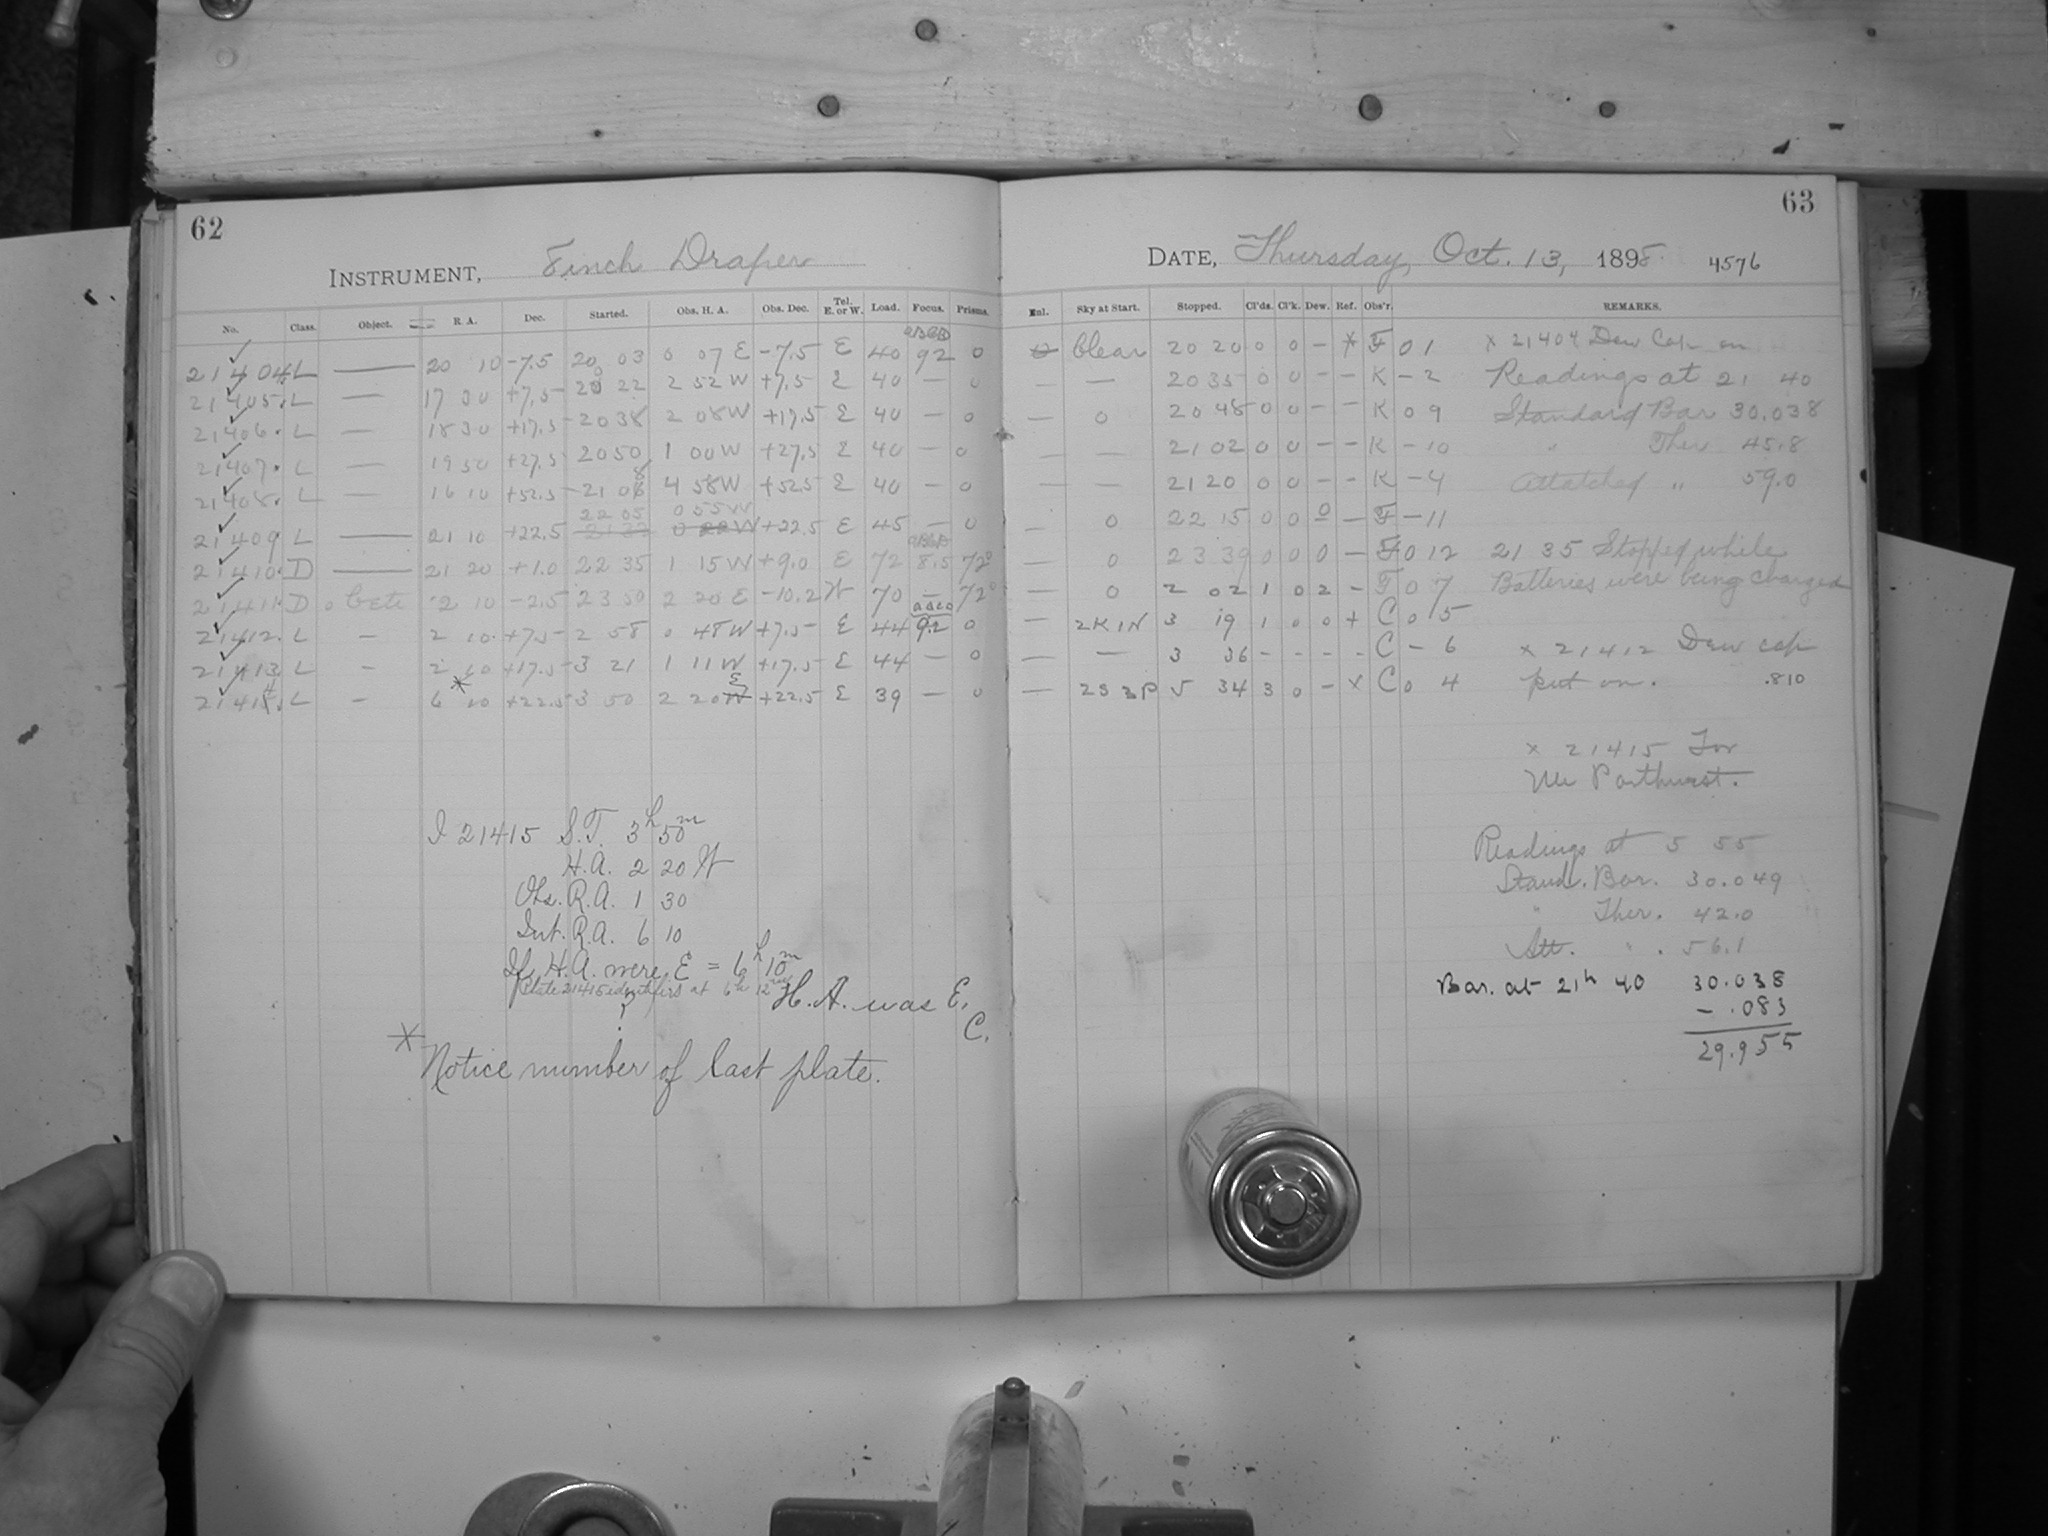 62
INSTRUMENT, 8 inch Draper
No. Class. Object. R. A. Dec. Started. Obs. H. A. Obs. Dec. Tel. E. or W. Load. Focus. Prisms.
21404. L — 20 10 -7.5 20 03 0 07 E -7.5 E 40 9.2 0
21405. L — 17 30 +7.5 20 22 2 52 W +7.5 E 40 — 0
21406. L — 18 30 +17.5 20 38 2 08 W +17.5 E 40 — 0
21407. L — 19 50 +27.5 20 50 1 00 W +27.5 E 40 — 0
21408. L — 16 10 +52.5 21 08 4 58 W +52.5 E 40 — 0
22 05 0 55 W
21409 L — 21 10 +22.5 21 32 0 22 W +22.5 E 45 — 0
21410. D — 21 20 +1.0 22 35 1 15 W +9.0 E 72 8.5 72°
21411. D o Ceti 2 10 -2.5 23 50 2 20 E -10.2 W 70 — 72°
21412. L — 2 10 +7.5 2 58 0 48 W +7.5 E 44 9.2 0
21413. L — 2 10 +17.5 3 21 1 11 W +17.5 E 44 — 0
E
21415. L — * 6 10 +22.5 3 50 2 20 W +22.5 E 39 — 0
I 21415 S.T. 3h 50m
H.A. 2 20 W
Obs. R.A. 1 30
Int. R.A. 6 10
If H.A. were E = 6h 10m
Plate 21415 identifies at 6h 12m
H. A. was E.
C.
* Notice number of last plate.
63
DATE, Thursday, Oct. 13, 1898. 4576
Enl. Sky at Start. Stopped. Cl'ds. Cl'k. Dew. Ref. Obs'r. REMARKS.
0 Clear 20 20 0 0 — * F 0 1 x 21404 Dew Cap on
— — 20 35 0 0 — — K — 2 Readings at 21 40
— 0 20 48 0 0 — — K 0 9 Standard Bar 30.038
— — 21 02 0 0 — — K — 10 " Ther 45.8
— — 21 20 0 0 — — K — 4 Attatched " 59.0
— 0 22 15 0 0 0 — F — 11
— 0 23 39 0 0 0 — F 0 12 21 35 Stopped while
— 0 2 02 1 0 2 — F 0 7 Batteries were being charged
— 2K1N 3 19 1 0 0 + C 0 5
— — 3 36 - - - - C — 6 x 21412 Dew cap
— 2S3P 5 34 3 0 — x C 0 4 put on. .810
x 21415 For
Mr Parkhurst.
Readings at 5 55
Stand. Bar. 30.049
" Ther. 42.0
Att. " . 56.1
Bar. at 21h 40 30.038
- .083
29.955